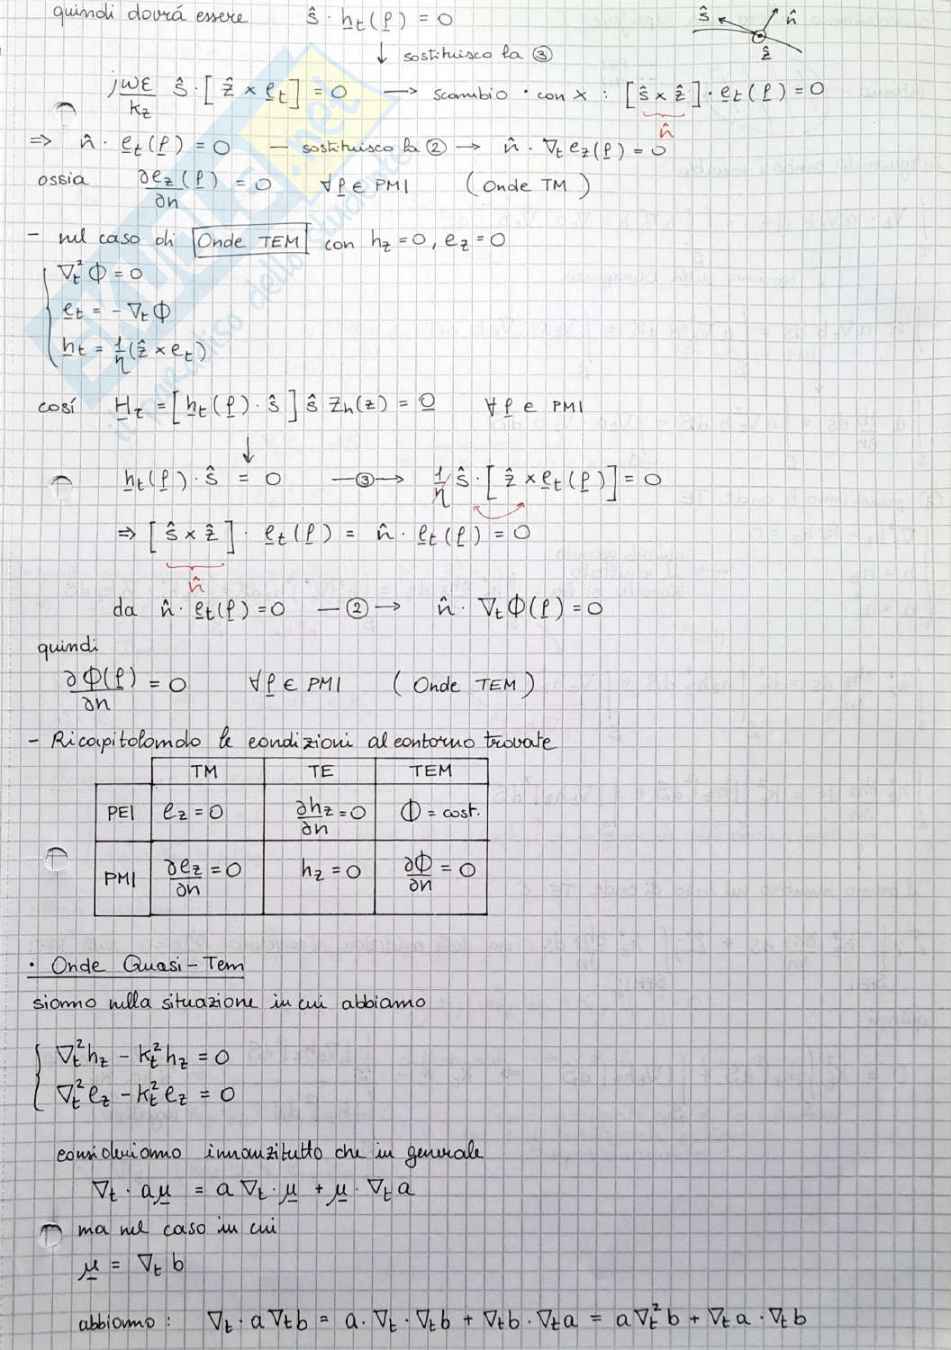 quindi dovrá essere ŝ · h̲t(ρ̲) = 0
ŝ n̂ ẑ
↓ sostituisco la ③
jωε/kz ŝ · [ẑ × e̲t] = 0 → scambio · con × : [ŝ × ẑ] · e̲t(ρ̲) = 0
n̂
⇒ n̂ · e̲t(ρ̲) = 0 — sostituisco la ② → n̂ · ∇t ez(ρ̲) = 0
ossia ∂ez(ρ̲)/∂n = 0 ∀ρ̲ ∈ PMI (Onde TM)
- nel caso di Onde TEM con hz = 0, ez = 0
∇t²Φ = 0
e̲t = -∇tΦ
h̲t = 1/η (ẑ × et)
cosí H̲z = [h̲t(ρ̲) · ŝ] ŝ Zh(z) = 0̲ ∀ρ̲ ∈ PMI
↓
h̲t(ρ̲) · ŝ = 0 —③→ 1/η ŝ · [ẑ × e̲t(ρ̲)] = 0
⇒ [ŝ × ẑ] · e̲t(ρ̲) = n̂ · e̲t(ρ̲) = 0
n̂
da n̂ · e̲t(ρ̲) = 0 —②→ n̂ · ∇tΦ(ρ̲) = 0
quindi
∂Φ(ρ̲)/∂n = 0 ∀ρ̲ ∈ PMI (Onde TEM)
- Ricapitolando le condizioni al contorno trovate
TM TE TEM
PEI ez = 0 ∂hz/∂n = 0 Φ = cost.
PMI ∂ez/∂n = 0 hz = 0 ∂Φ/∂n = 0
· Onde Quasi-Tem
siamo nella situazione in cui abbiamo
∇t²hz - kt²hz = 0
∇t²ez - kt²ez = 0
consideriamo innanzitutto che in generale
∇t · aμ̲ = a∇t · μ̲ + μ̲ · ∇ta
ma nel caso in cui
μ̲ = ∇t b
abbiamo : ∇t · a∇tb = a · ∇t · ∇tb + ∇tb · ∇ta = a∇t²b + ∇ta · ∇tb